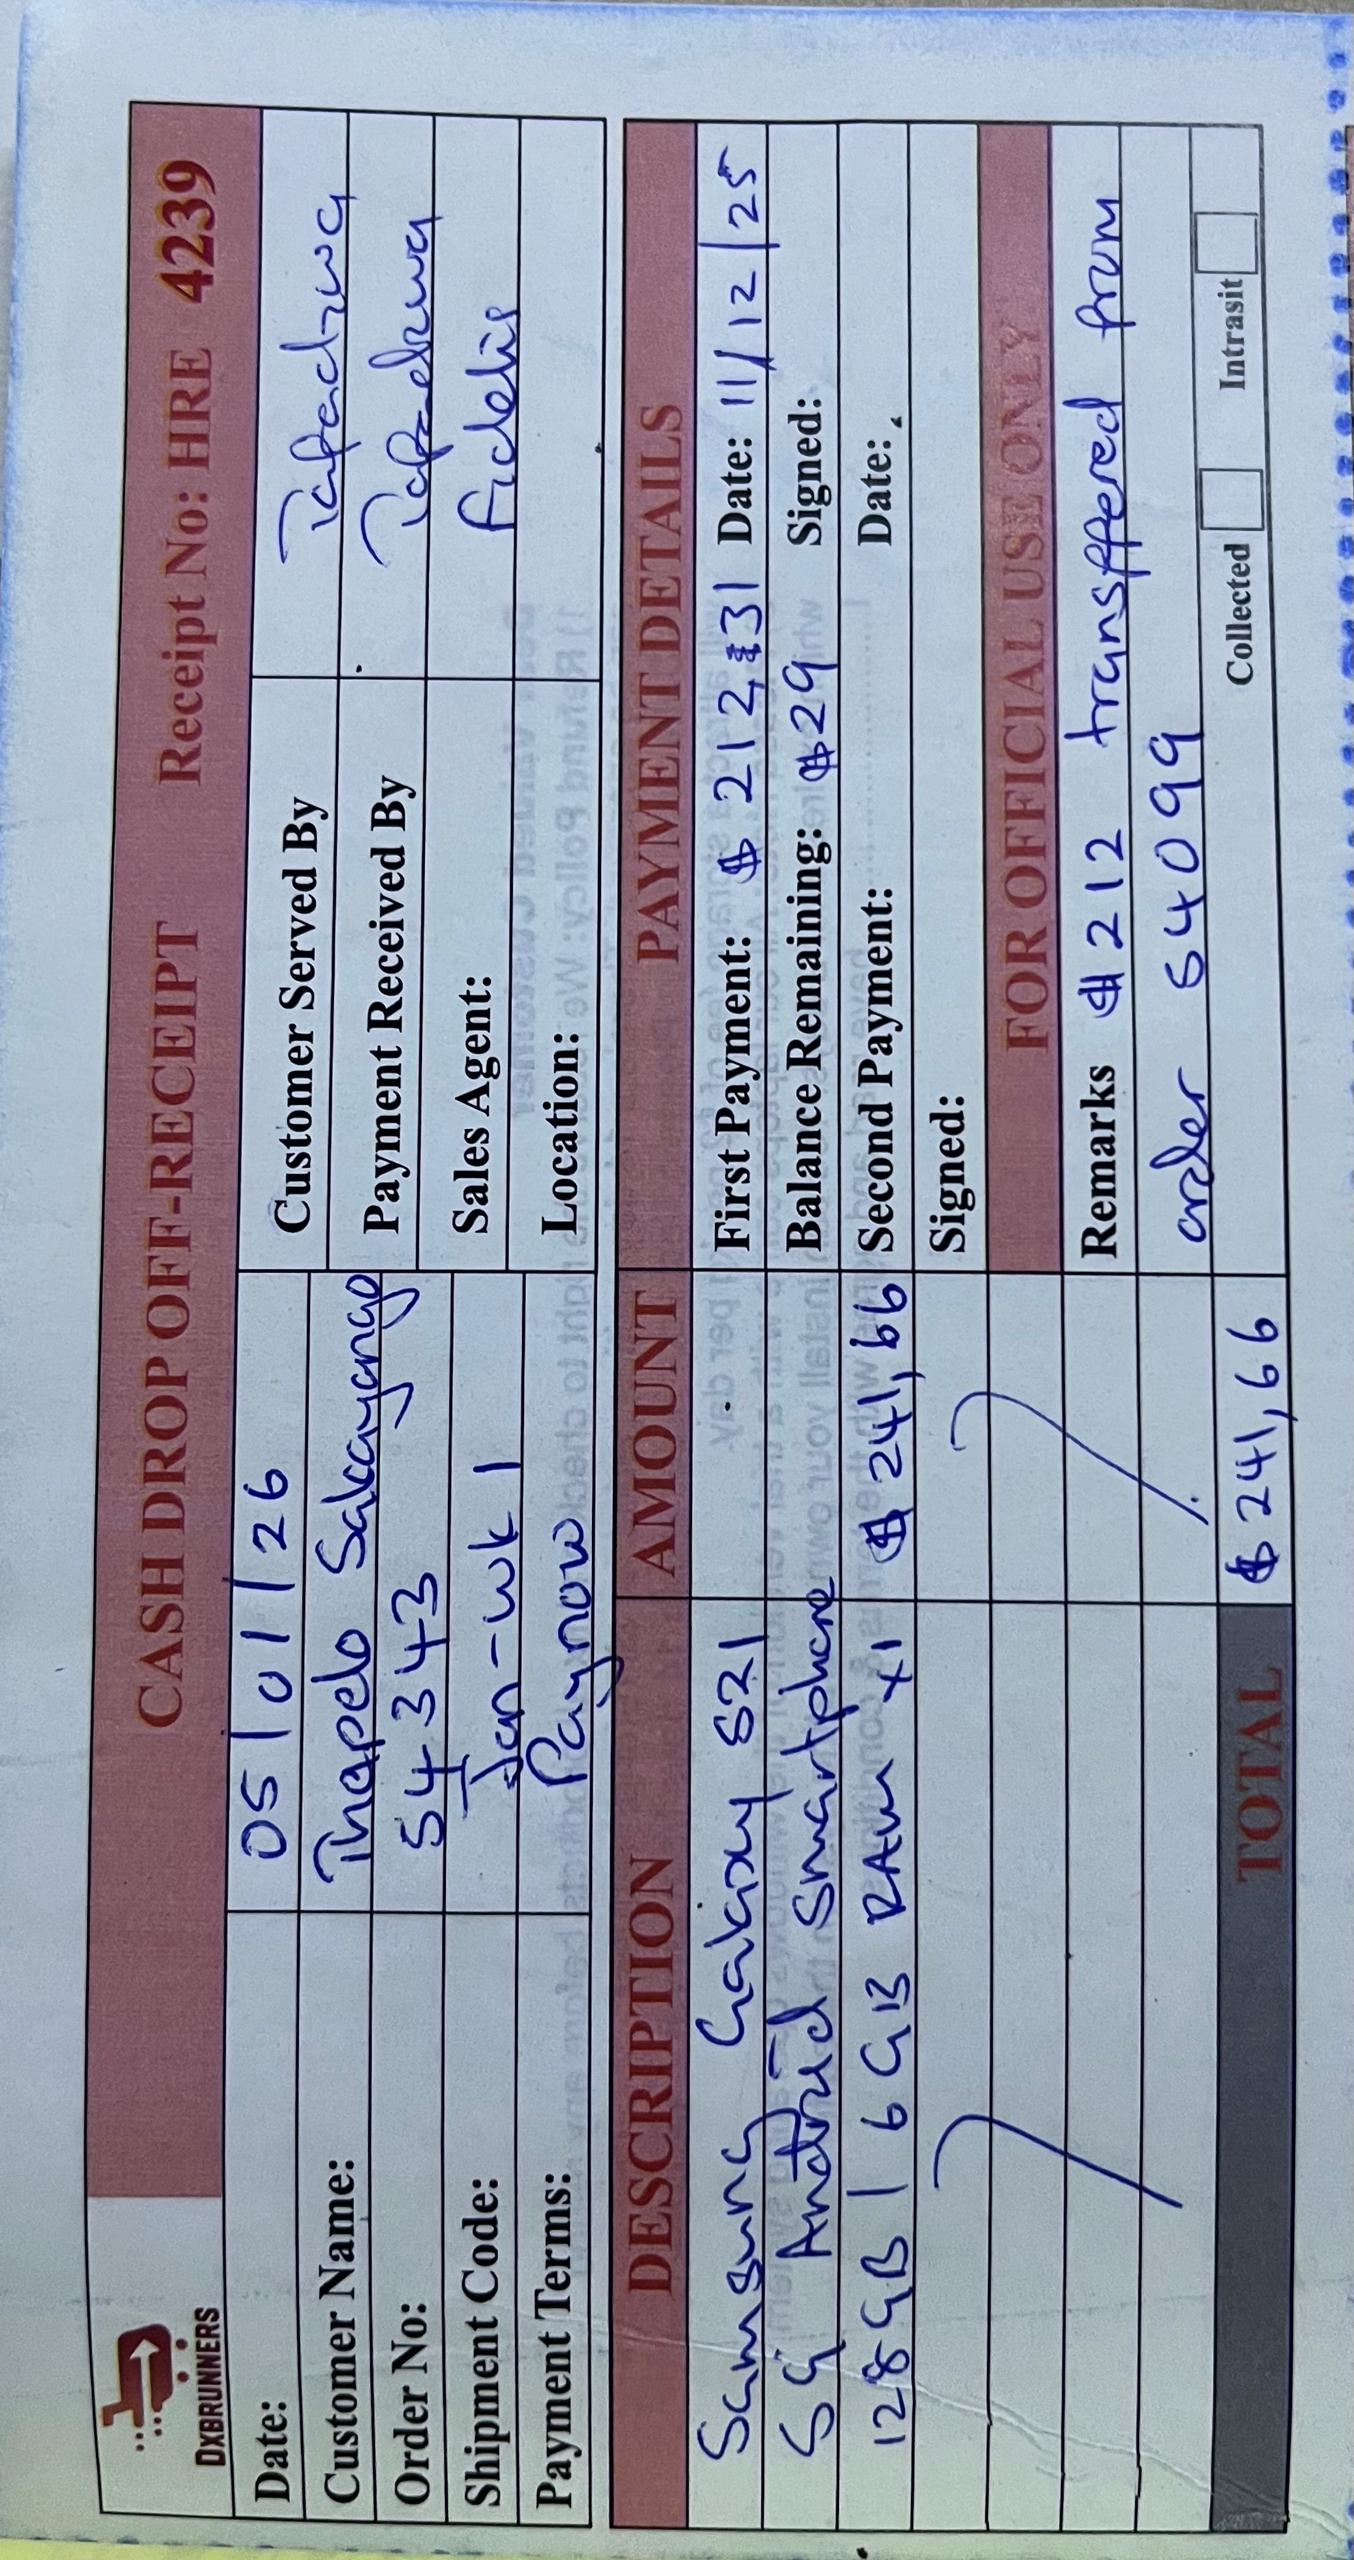 DXBRUNNERS
CASH DROP OFF-RECEIPT Receipt No: HRE 4239
Date: 05/01/26
Customer Name: Thapelo Sakayango
Order No: 54343
Shipment Code: Jan-wk 1
Payment Terms: Paynow
Customer Served By Tafadzwa
Payment Received By Tafadzwa
Sales Agent: Fidelis
Location:
DESCRIPTION AMOUNT PAYMENT DETAILS
Samsung Galaxy S21
5G Android Smartphone
128GB | 6GB RAM x1 $ 241,66
First Payment: $ 212,31 Date: 11/12/25
Balance Remaining: $29 Signed:
Second Payment: Date:
Signed:
FOR OFFICIAL USE ONLY
Remarks $212 transffered from
order 54099
TOTAL $ 241,66
Collected Intrasit